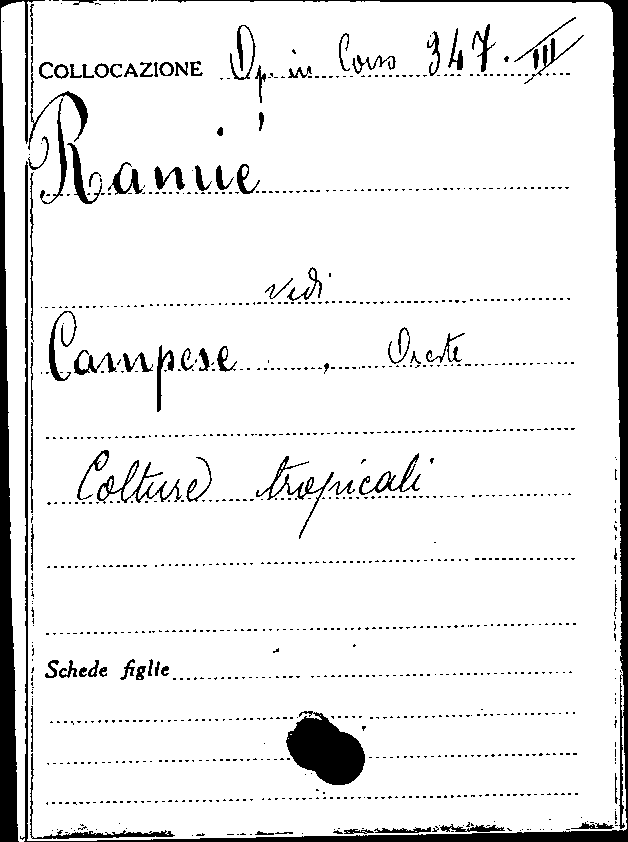 COLLOCAZIONE Op. in Corso 347. III
Ramié
vedi
Campese , Oreste
Colture tropicali
Schede figlie